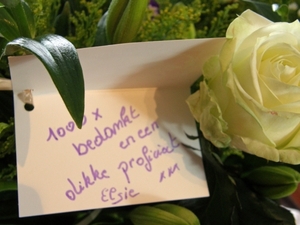 1000 x
bedankt
en een
dikke proficiat
Elsie xxx